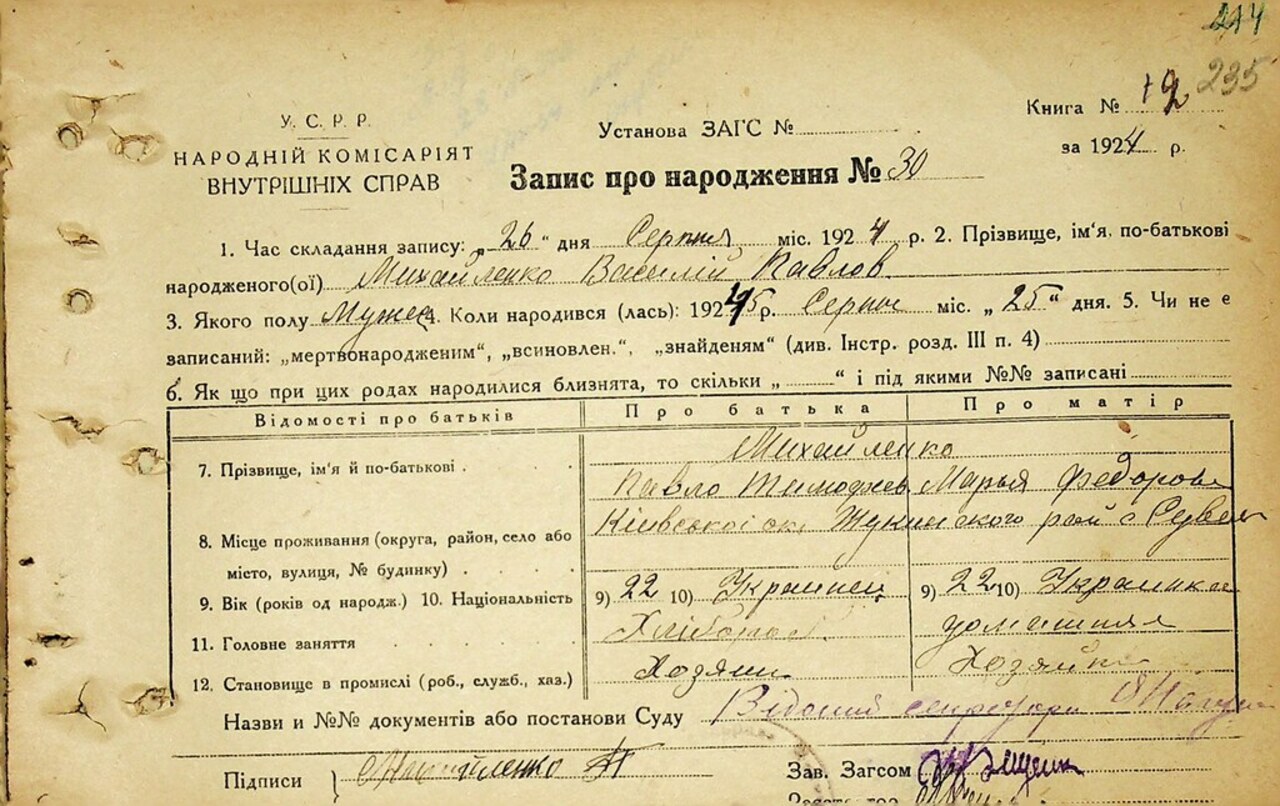 214
235
Книга № 12
У. С. Р. Р.
Установа ЗАГС №
за 1924 р.
НАРОДНІЙ КОМІСАРІЯТ
ВНУТРІШНІХ СПРАВ
Запис про народження № 30
1. Час складання запису: „26“ дня Серпня міс. 1924 р. 2. Прізвище, ім'я, по-батькові
народженого(ої) Михайленко Василій Павлов
3. Якого полу Мужес 4. Коли народився (лась): 192 р. Серпня міс. „25“ дня. 5. Чи не є
записаний: „мертвонародженим“, „всиновлен.“, „знайденям“ (див. Інстр. розд. III п. 4)
6. Як що при цих родах народилися близнята, то скільки „ “ і під якими №№ записані
Відомості про батьків Про батька Про матір
Михайленко
7. Прізвище, ім'я й по-батькові . . . Павло Тимофеев Марья Федоровн
Київської ок. району с
8. Місце проживання (округа, район, село або
місто, вулиця, № будинку) . . . .
9. Вік (років од народж.) 10. Національність 9) 22 10) Украинец 9) 22 10) Украинка
11. Головне заняття . . . . Хлібороб домашняя
12. Становище в промислі (роб., служб., хаз.) Хозяин Хозяйка
Назви и №№ документів або постанови Суду Відомий секретарю
Підписи } Михайленко П Зав. Загсом